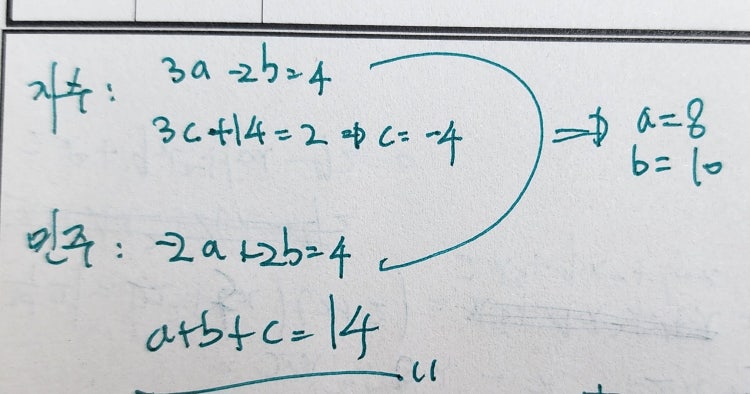 지수: 3a-2b=4
3c+14=2 ⇒ c=-4
⇒ a=8
b=10
민주: -2a+2b=4
a+b+c=14